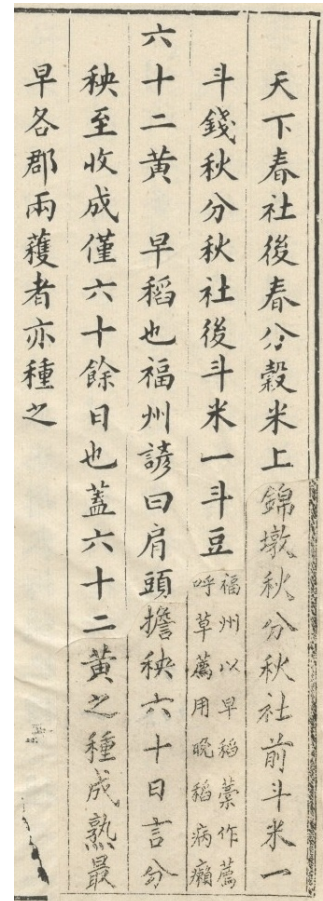 天下春社後春分穀米上錦墩秋分秋社前斗米一
斗錢秋分秋社後斗米一斗豆福州以早稻藁作薦
呼草薦用晚稻病癩
六十二黃　早稻也福州諺曰肩頭擔秧六十日言分
秧至收成僅六十餘日也蓋六十二黃之種成熟最
早各郡兩穫者亦種之